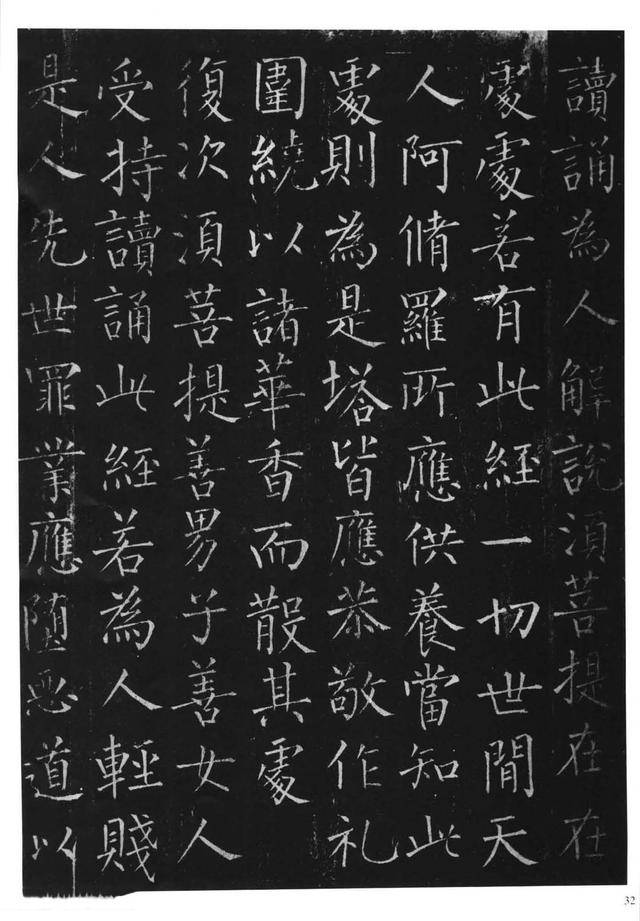 讀誦為人解說湏菩提在在
處處若有此經一切世間天
人阿脩羅所應供養當知此
處則為是塔皆應恭敬作礼
圍繞以諸華香而散其處
復次湏菩提善男子善女人
受持讀誦此經若為人輕賤
是人先世罪業應墮惡道以
32